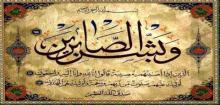 بسم الله الرحمن الرحيم
وبشر الصابرين
الذين إذا أصابتهم مصيبة قالوا إنا لله وإنا إليه راجعون
صدق الله العظيم